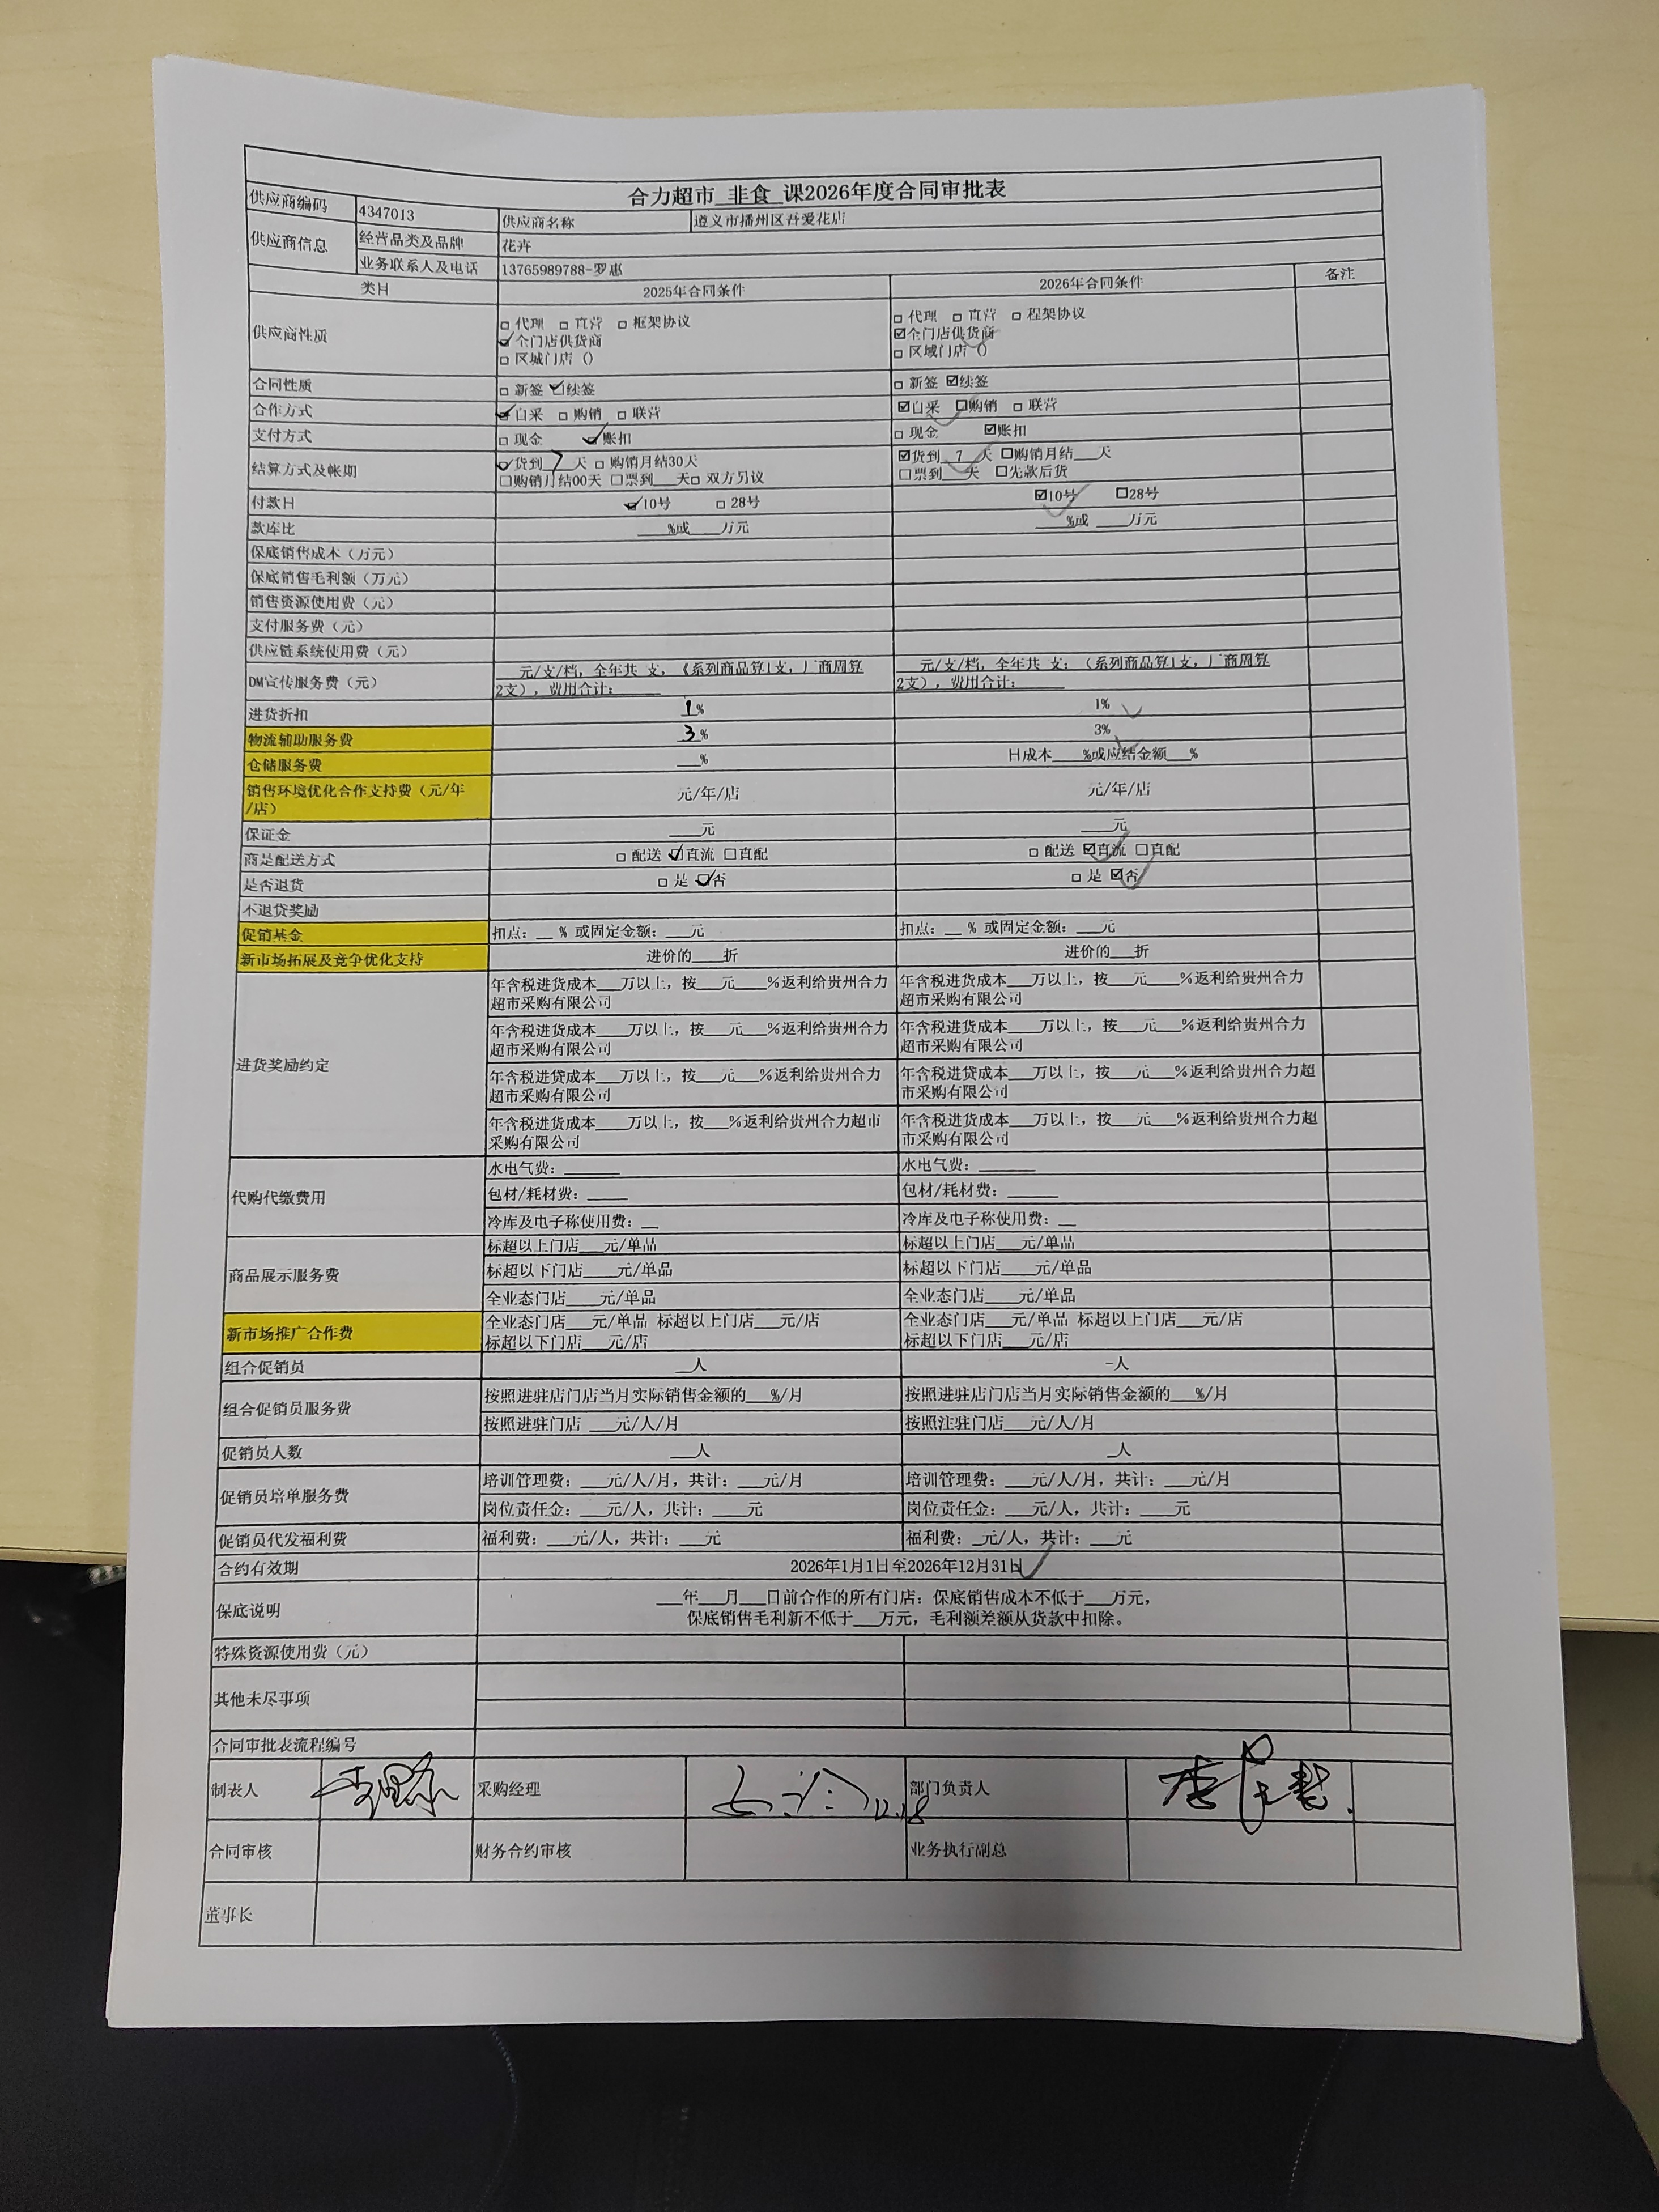 合力超市 非食 课2026年度合同审批表
供应商编码 4347013 供应商名称 遵义市播州区吾爱花店
供应商信息 经营品类及品牌 花卉
业务联系人及电话 13765989788-罗惠
类目 2025年合同条件 2026年合同条件 备注
供应商性质
□ 代理 □ 直营 □ 框架协议 □ 代理 □ 直营 □ 程架协议
☑全门店供货商 ☑全门店供货商
□ 区域门店 () □ 区域门店 ()
合同性质 □ 新签 ☑续签 □ 新签 ☑续签
合作方式 ☑自采 □ 购销 □ 联营 ☑自采 □购销 □ 联营
支付方式 □ 现金 ☑账扣 □ 现金 ☑账扣
结算方式及帐期 ☑货到 7 天 □ 购销月结30天 ☑货到 7 天 □购销月结___天
□购销月结00天 □票到___天□ 双方另议 □票到___天 □先款后货
付款日 ☑10号 □ 28号 ☑10号 □28号
款库比 ___%或___万元 ___%或___万元
保底销售成本（万元）
保底销售毛利额（万元）
销售资源使用费（元）
支付服务费（元）
供应链系统使用费（元）
DM宣传服务费（元） 元/支/档，全年共 支，（系列商品算1支，厂商周算2支），费用合计：____ 元/支/档，全年共 支；（系列商品算1支，厂商周算2支），费用合计：____
进货折扣 1% 1%
物流辅助服务费 3% 3%
仓储服务费 ___% 日成本___%或应结金额___%
销售环境优化合作支持费（元/年/店） 元/年/店 元/年/店
保证金 ___元 ___元
商是配送方式 □ 配送 ☑直流 □直配 □ 配送 ☑直流 □直配
是否退货 □ 是 ☑否 □ 是 ☑否
不退货奖励
促销基金 扣点：__ % 或固定金额：___元 扣点：__ % 或固定金额：___元
新市场拓展及竞争优化支持 进价的___折 进价的___折
进货奖励约定
年含税进货成本___万以上，按___元___%返利给贵州合力超市采购有限公司 年含税进货成本___万以上，按___元___%返利给贵州合力超市采购有限公司
年含税进货成本___万以上，按___元___%返利给贵州合力超市采购有限公司 年含税进货成本___万以上，按___元___%返利给贵州合力超市采购有限公司
年含税进货成本___万以上，按___元___%返利给贵州合力超市采购有限公司 年含税进货成本___万以上，按___元___%返利给贵州合力超市采购有限公司
年含税进货成本___万以上，按___%返利给贵州合力超市采购有限公司 年含税进货成本___万以上，按___元___%返利给贵州合力超市采购有限公司
代购代缴费用
水电气费：____ 水电气费：____
包材/耗材费：___ 包材/耗材费：____
冷库及电子称使用费：__ 冷库及电子称使用费：__
商品展示服务费
标超以上门店___元/单品 标超以上门店___元/单品
标超以下门店___元/单品 标超以下门店___元/单品
全业态门店___元/单品 全业态门店___元/单品
新市场推广合作费
全业态门店___元/单品 标超以上门店___元/店 全业态门店___元/单品 标超以上门店___元/店
标超以下门店___元/店 标超以下门店___元/店
组合促销员 __人 -人
组合促销员服务费
按照进驻店门店当月实际销售金额的___%/月 按照进驻店门店当月实际销售金额的___%/月
按照进驻门店 ___元/人/月 按照注驻门店___元/人/月
促销员人数 ___人 __人
促销员培单服务费
培训管理费：___元/人/月，共计：___元/月 培训管理费：___元/人/月，共计：___元/月
岗位责任金：___元/人，共计：___元 岗位责任金：___元/人，共计：___元
促销员代发福利费 福利费：___元/人，共计：___元 福利费：_元/人，共计：___元
合约有效期 2026年1月1日至2026年12月31日
保底说明
___年___月___日前合作的所有门店：保底销售成本不低于___万元，
保底销售毛利新不低于___万元，毛利额差额从货款中扣除。
特殊资源使用费（元）
其他未尽事项
合同审批表流程编号
制表人 采购经理 12.18 部门负责人
合同审核 财务合约审核 业务执行副总
董事长